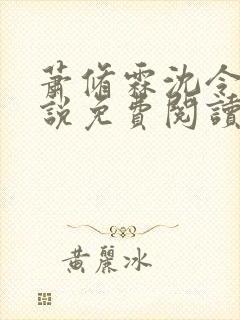 蕭脩霖沈令
說免費閱讀
黃麗冰